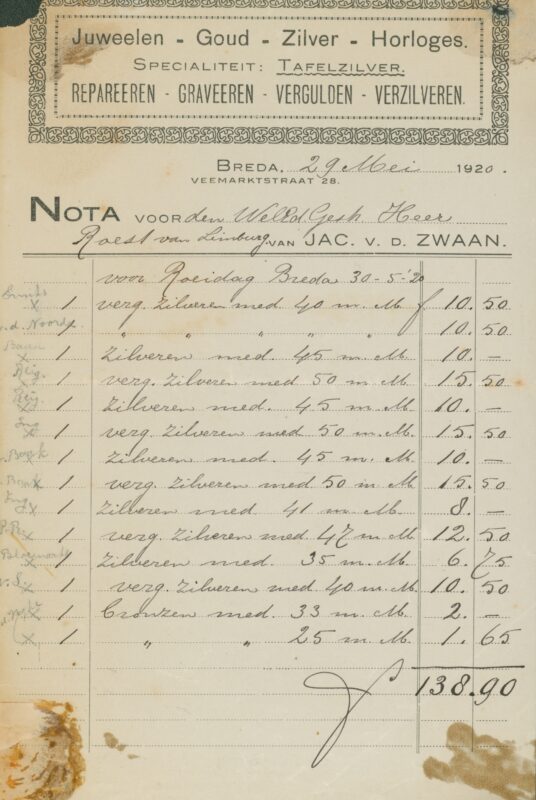 Juweelen - Goud - Zilver - Horloges.
SPECIALITEIT: TAFELZILVER.
REPAREEREN - GRAVEEREN - VERGULDEN - VERZILVEREN.
BREDA, 29 Mei 1920.
VEEMARKTSTRAAT 28.
NOTA VOOR den WelEd Gestr Heer
Roest van Limburg VAN JAC. v. d. ZWAAN.
voor Roeidag Breda 30-5-'20
1 verg. zilveren med 40 m.M. f 10.50
1 " " " " " 10.50
1 zilveren med. 45 m.M. 10.-
1 verg. zilveren med 50 m.M. 15.50
1 zilveren med. 45 m.M. 10.-
1 verg. zilveren med 50 m.M. 15.50
1 zilveren med. 45 m.M. 10.-
1 verg. zilveren med 50 m.M. 15.50
1 zilveren med. 41 m.M. 8.-
1 verg. zilveren med 47 m.M. 12.50
1 zilveren med. 35 m.M. 6.75
1 verg. zilveren med 40 m.M. 10.50
1 bronzen med. 33 m.M. 2.-
1 " " 25 m.M. 1.65
138.90